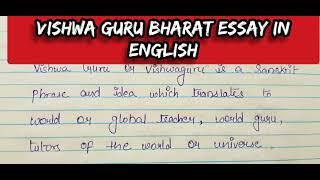 VISHWA GURU BHARAT ESSAY IN
ENGLISH
Vishwa Guru or Vishwaguru is a Sanskrit
phrase and idea which translates to
world or global teacher, world guru,
tutors of the world or universe.